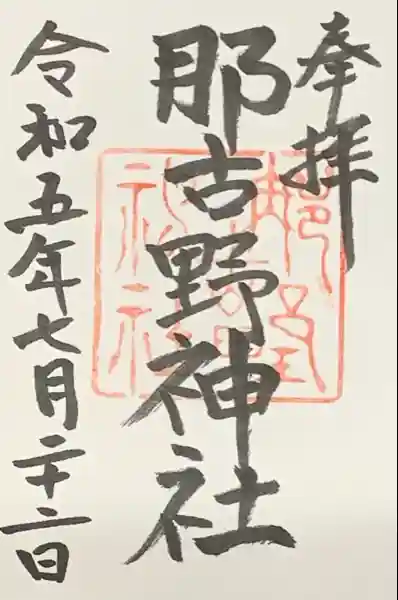 奉拝
那古野神社
令和五年七月二十二日